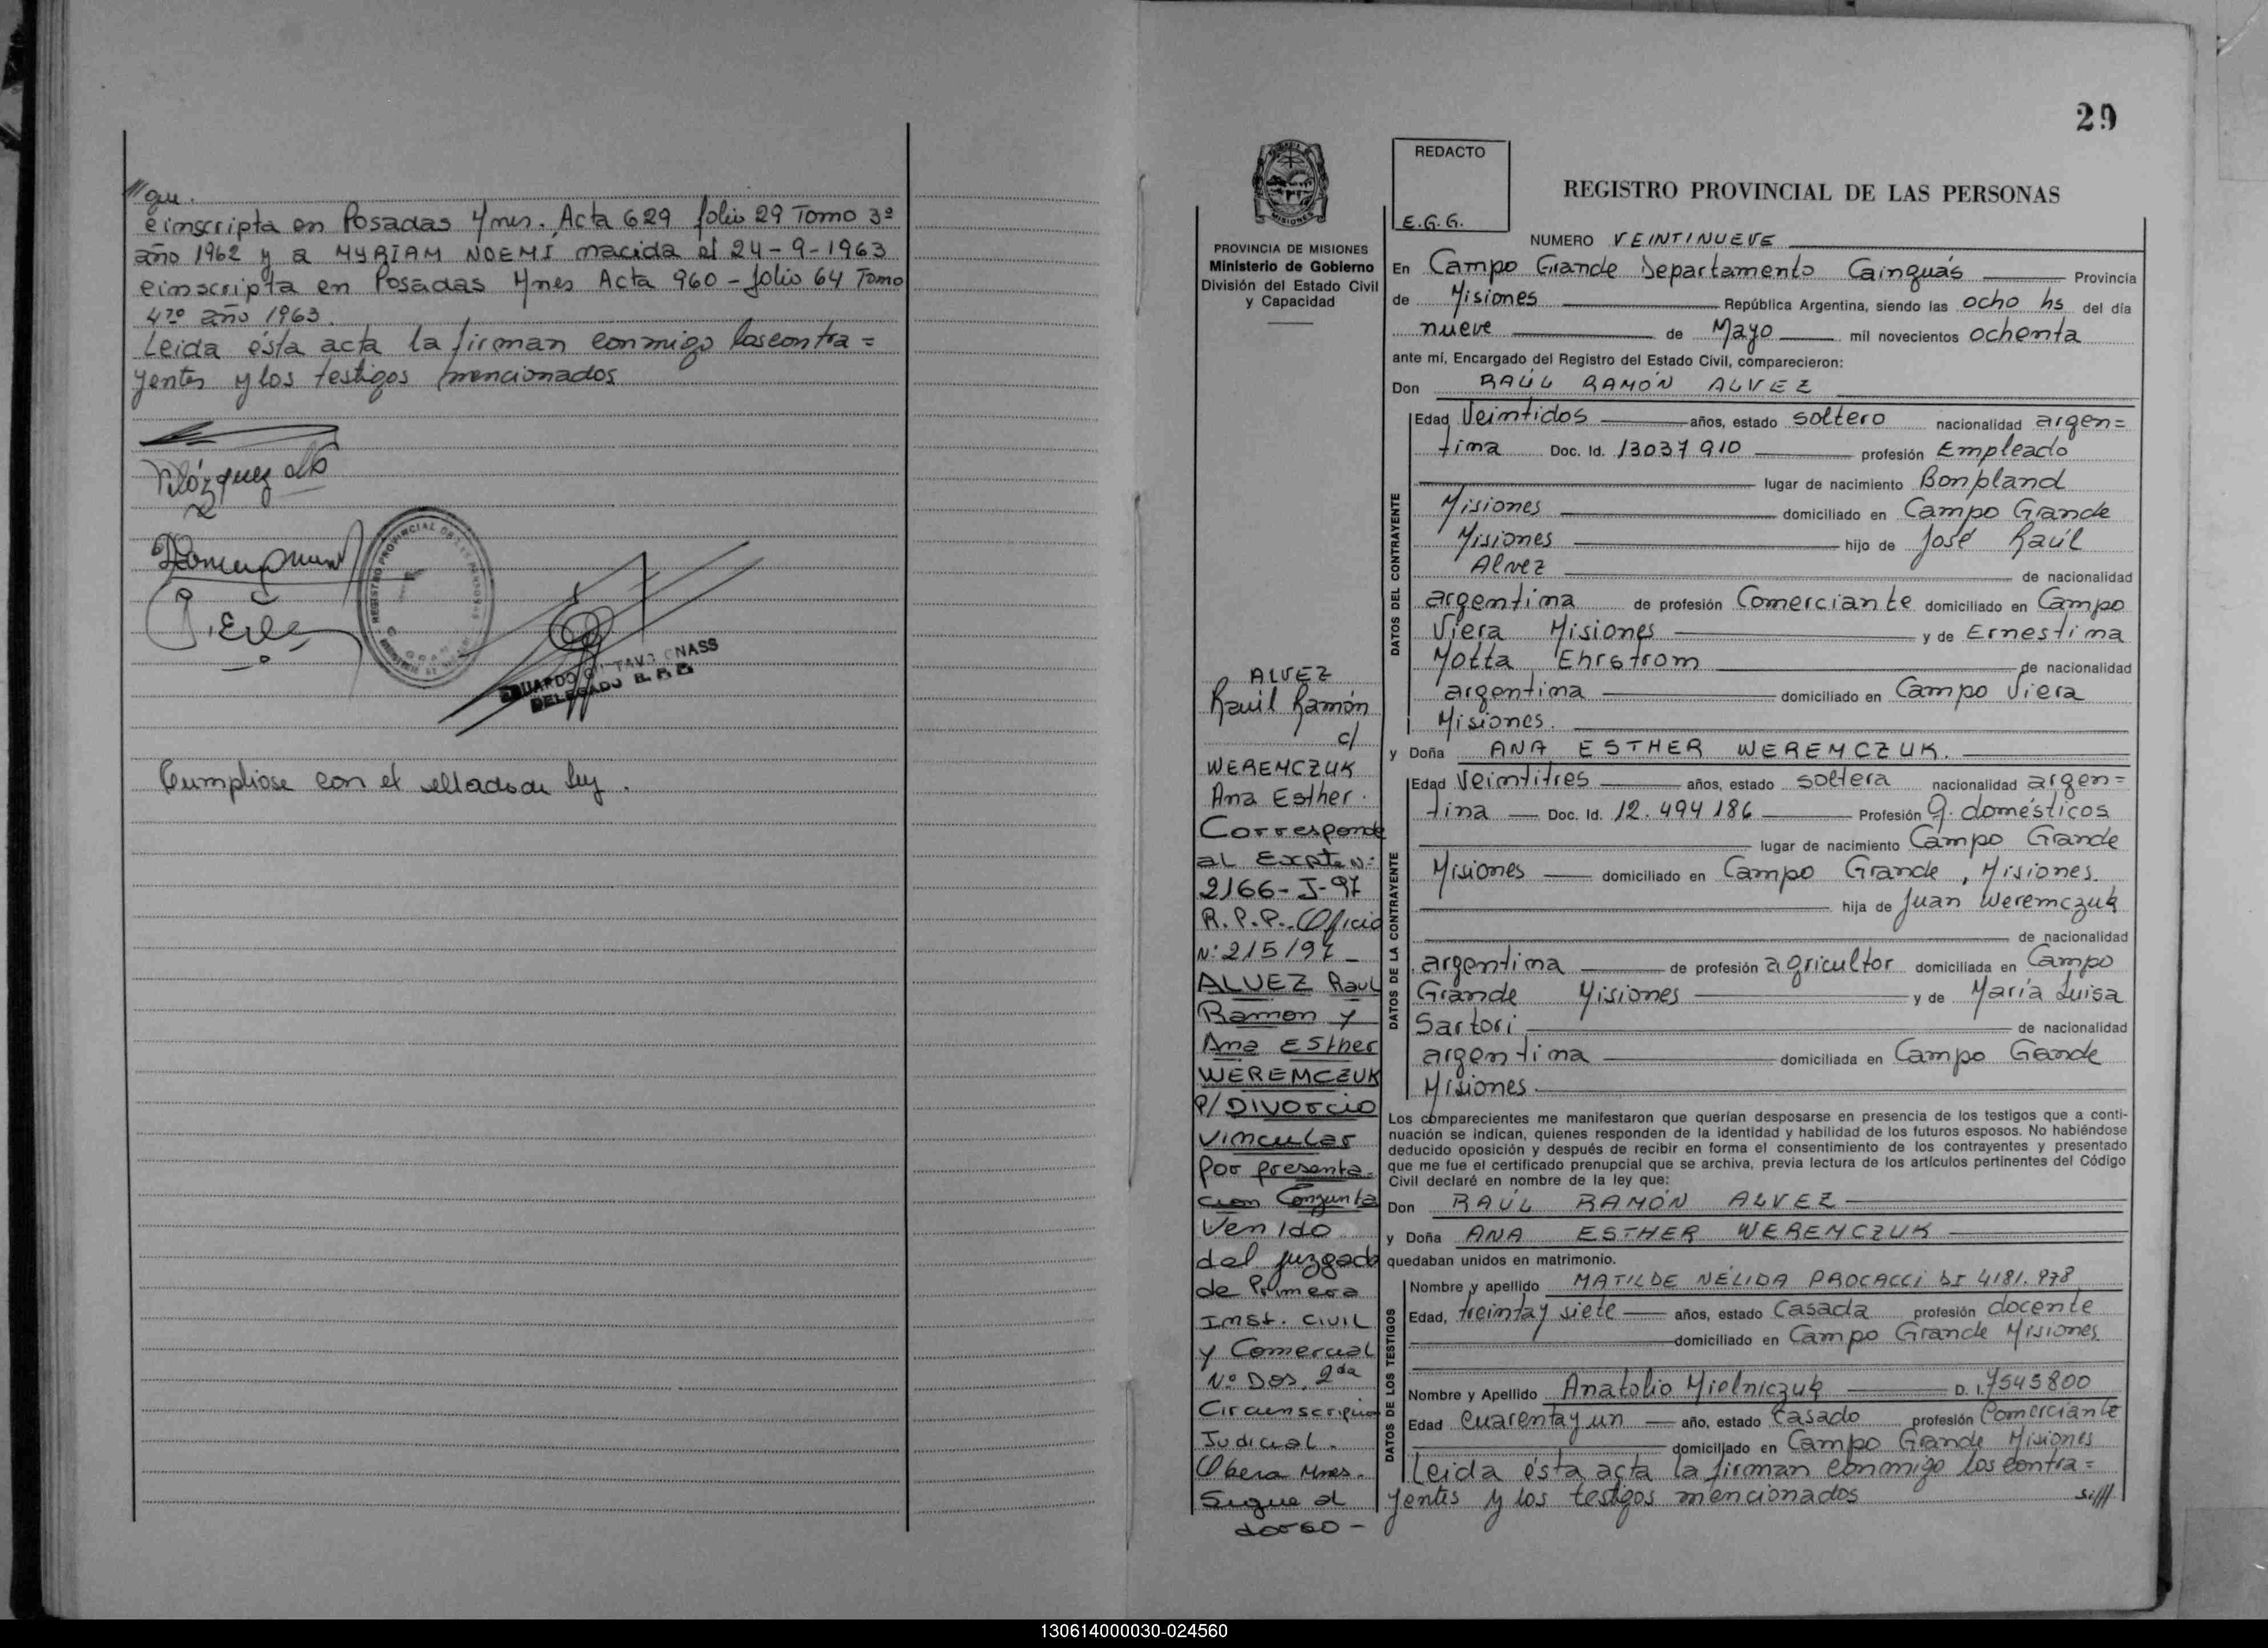 //que.
e inscripta en Posadas Mnes. Acta 629 folio 29 Tomo 3º
año 1962 y a MYRIAM NOEMÍ nacida el 24-9-1963
e inscripta en Posadas Mnes Acta 960 - folio 64 Tomo
4to año 1963.
Leida ésta acta la firman conmigo los contra =
yentes y los testigos mencionados
REGISTRO PROVINCIAL DE LAS PERSONAS
DELEGADO
Cumpliose con el sellado de ley.
29
REDACTO
E.G.G.
REGISTRO PROVINCIAL DE LAS PERSONAS
MISIONES
PROVINCIA DE MISIONES
Ministerio de Gobierno
División del Estado Civil
y Capacidad
NUMERO VEINTINUEVE
En Campo Grande Departamento Cainguás Provincia
de Misiones República Argentina, siendo las ocho hs del día
nueve de Mayo mil novecientos ochenta
ante mí, Encargado del Registro del Estado Civil, comparecieron:
Don RAÚL RAMÓN ALVEZ
DATOS DEL CONTRAYENTE
Edad Veintidos años, estado soltero nacionalidad argen=
tina Doc. Id. 13037910 profesión Empleado
lugar de nacimiento Bonpland
Misiones domiciliado en Campo Grande
Misiones hijo de José Raúl
Alvez de nacionalidad
argentina de profesión Comerciante domiciliado en Campo
Viera Misiones y de Ernestina
Motta Ehrstrom de nacionalidad
argentina domiciliado en Campo Viera
Misiones.
y Doña ANA ESTHER WEREMCZUK.
DATOS DE LA CONTRAYENTE
Edad Veintitres años, estado soltera nacionalidad argen=
tina Doc. Id. 12.494186 Profesión Q. domésticos
lugar de nacimiento Campo Grande
Misiones domiciliado en Campo Grande, Misiones.
hija de Juan Weremczuk
de nacionalidad
argentina de profesión agricultor domiciliada en Campo
Grande Misiones y de María Luisa
Sartori de nacionalidad
argentina domiciliada en Campo Grande
Misiones.
Los comparecientes me manifestaron que querían desposarse en presencia de los testigos que a conti-
nuación se indican, quienes responden de la identidad y habilidad de los futuros esposos. No habiéndose
deducido oposición y después de recibir en forma el consentimiento de los contrayentes y presentado
que me fue el certificado prenupcial que se archiva, previa lectura de los artículos pertinentes del Código
Civil declaré en nombre de la ley que:
Don RAÚL RAMÓN ALVEZ
y Doña ANA ESTHER WEREMCZUK
quedaban unidos en matrimonio.
DATOS DE LOS TESTIGOS
Nombre y apellido MATILDE NÉLIDA PROCACCI DI 4181.978
Edad, treinta y siete años, estado Casada profesión docente
domiciliado en Campo Grande Misiones
Nombre y Apellido Anatolio Mielniczuk D. I. 7545800
Edad Cuarenta y un año, estado Casado profesión Comerciante
domiciliado en Campo Grande Misiones
Leida ésta acta la firman conmigo los contra=
yentes y los testigos mencionados
ALVEZ
Raúl Ramón
c/
WEREMCZUK
Ana Esther.
Corresponde
al Expte N:
2166-J-97
R.P.P. Oficio
N: 215/97
ALVEZ Raul
Ramon y
Ana Esther
WEREMCZUK
P/ Divorcio
vincular
por presenta-
cion Conjunta
Venido
del juzgado
de Primera
Inst. Civil
y Comercial
Nº Dos. 2da
Circunscripcion
Judicial.
Obera Mnes.
Sigue al
dorso -
130614000030-024560